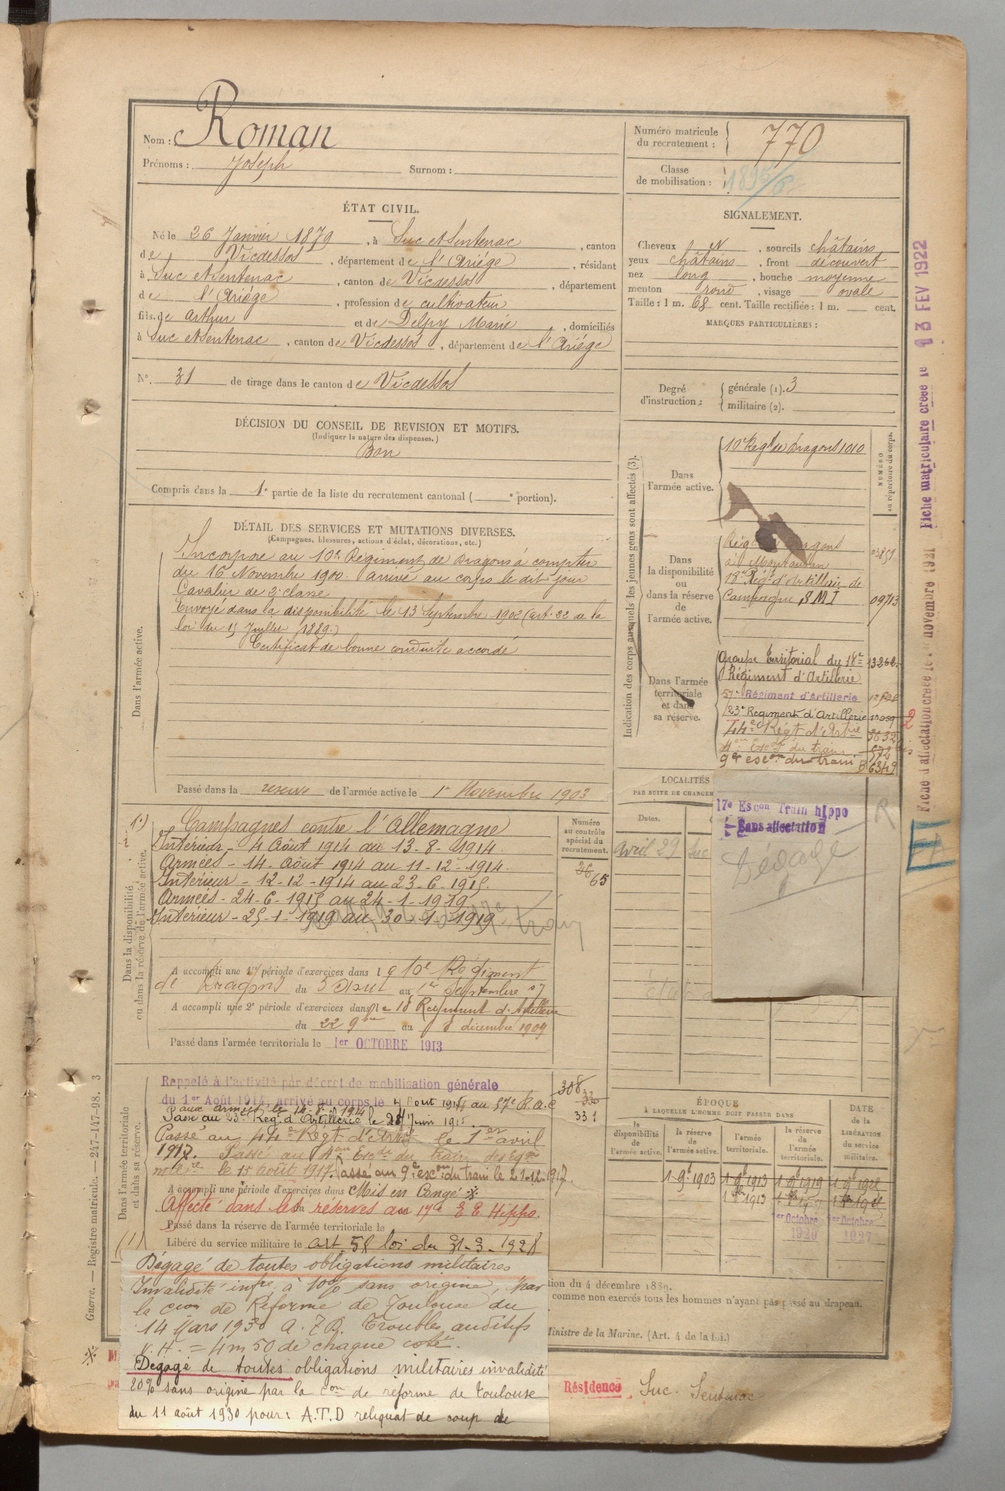 Nom : Roman
Prénoms : Joseph Surnom :
Numéro matricule du recrutement : 770
Classe de mobilisation :
ÉTAT CIVIL.
Né le 26 Janvier 1879, à Suc et Sentenac, canton
de Vicdessos, département de l'Ariège, résidant
à Suc et Sentenac, canton de Vicdessos, département
de l'Ariège, profession de cultivateur
fils de Arthur et de Delpy Marie, domiciliés
à Suc et Sentenac, canton de Vicdessos, département de l'Ariège
N° 31 de tirage dans le canton de Vicdessos
SIGNALEMENT.
Cheveux N, sourcils châtains
yeux châtains, front découvert
nez long, bouche moyenne
menton rond, visage ovale
Taille : 1 m. 68 cent. Taille rectifiée : 1 m. cent.
MARQUES PARTICULIÈRES :
Degré d'instruction : générale (1). 3
militaire (2).
DÉCISION DU CONSEIL DE REVISION ET MOTIFS.
(Indiquer la nature des dispenses.)
Bon
Compris dans la 1e partie de la liste du recrutement cantonal ( e portion).
DÉTAIL DES SERVICES ET MUTATIONS DIVERSES.
(Campagnes, blessures, actions d'éclat, décorations, etc.)
Dans l'armée active.
Incorporé au 10e Régiment de Dragons à compter
du 16 Novembre 1900. arrivé au corps le dit jour
Cavalier de 2e classe
Envoyé dans la disponibilité le 13 Septembre 1902 (art. 22 de la
loi du 15 Juillet 1889.)
Certificat de bonne conduite accordé
Passé dans la réserve de l'armée active le 1er Novembre 1903
Indication des corps auxquels les jeunes gens sont affectés (3).
NUMÉRO au répertoire du corps.
Dans l'armée active.
10e Régt de Dragons 1010
Dans la disponibilité ou dans la réserve de l'armée active.
à Montauban
18e Régt d'Artillerie de
Campagne, SMI 09713
Dans l'armée territoriale et dans sa réserve.
Groupe Territorial du 18e
Régiment d'Artillerie
57e Régiment d'Artillerie
23e Régiment d'Artillerie
4e Escon du train
9e escon du train
LOCALITÉS
PAR SUITE DE CHANGEM
Dates.
Avril 29 Suc
17e Escon Train hippo
Sans affectation
Dégagé
R
Fiche matriculaire créée le 13 FEV 1922
Fiche d'affectation créée le novembre 1921
III
Dans la disponibilité ou dans la réserve de l'armée active.
Numéro au contrôle spécial du recrutement.
Campagnes contre l'Allemagne
Intérieur - 4 Août 1914 au 13-8-1914.
Armées - 14 Août 1914 au 11-12-1914
Intérieur - 12-12-1914 au 23-6-1915.
Armées - 24-6-1915 au 24-1-1919
Intérieur - 25-1-1919 au 30-1-1919
A accompli une 1re période d'exercices dans le 10e Régiment
de Dragons du 5 Août au 1er Septembre 07
A accompli une 2e période d'exercices dans le 18 Régiment d'Artillerie
du 22 9bre au 8 décembre 1909
Passé dans l'armée territoriale le 1er OCTOBRE 1913
Dans l'armée territoriale et dans sa réserve.
Rappelé à l'activité par décret de mobilisation générale
du 1er Août 1914, arrivé au corps le 4 Août 1914 au 57e R.A.C
aux armées le 14-8-1914
Passé au 23e Rég. d'Artillerie le
Passé au 44e Régt d'Artie le 1er avril
1917. Passé au 4em Escon du train des éqges
mres le 15 août 1917. Passé au 9e escon du train le 21-11-1917.
A accompli une période d'exercices dans Mis en Congé
Affecté dans les réserves au 17e E E Hippo.
Passé dans la réserve de l'armée territoriale le
Libéré du service militaire le art 58 loi du 31-3-1928
ÉPOQUE
À LAQUELLE L'HOMME DOIT PASSER DANS
la disponibilité de l'armée active.
la réserve de l'armée active.
l'armée territoriale.
la réserve de l'armée territoriale.
DATE DE LA LIBÉRATION du service militaire.
1 9bre 1903
1 9bre 1913
1 9bre 1919
1er Octobre
1er Octobre
1927
Dégagé de toutes obligations militaires
Invalidité infre à 10% sans origine, par
la Con de Réforme de Toulouse du
14 Mars 1930 A.T.D. Troubles auditifs
V.H. = 4m50 de chaque côté.
Dégagé de toutes obligations militaires invalidité
20% sans origine par la Con de réforme de Toulouse
du 11 août 1930 pour : A.T.D reliquat de coup de
tion du 4 décembre 1889.
comme non exercés tous les hommes n'ayant pas passé au drapeau.
Ministre de la Marine. (Art. 4 de la loi.)
Résidence Suc - Sentenac
Guerre. — Registre matricule. — 247-147-98. 3